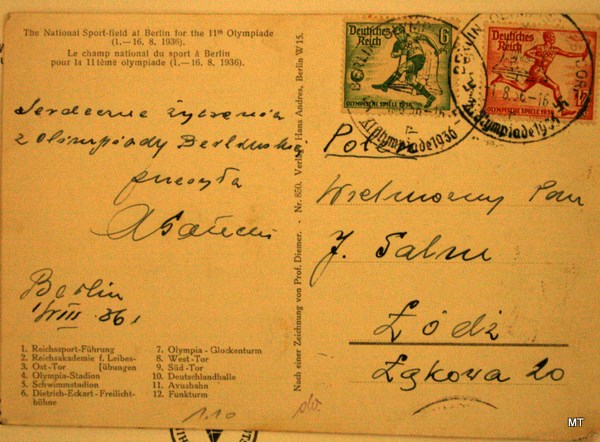 The National Sport-field at Berlin for the 11th Olympiade
(1.—16. 8. 1936).
Le champ national du sport à Berlin
pour la 11tème olympiade (1.—16. 8. 1936).
Serdeczne życzenia
z Olimpiady Berlińskiej
przesyła
Berlin
1/VIII 36
1. Reichssport-Führung
2. Reichsakademie f. Leibes-
3. Ost-Tor [übungen
4. Olympia-Stadion
5. Schwimmstadion
6. Dietrich-Eckart-Freilicht-
bühne
7. Olympia-Glockenturm
8. West-Tor
9. Süd-Tor
10. Deutschlandhalle
11. Avushahn
12. Funkturm
1.10
Nach einer Zeichnung von Prof. Diemer. · Nr. 850. Verlag Hans Andres, Berlin W 15.
Deutsches
Reich
6
OLYMPISCHE SPIELE 1936
Deutsches
Reich
OLYMPISCHE SPIELE 1936
BERLIN
XI.Olympiade1936
BERLIN
1.8.36-16
XI.Olympiade1936
Wielmożny Pan
J. Salm
Łódź
Łąkowa 20
MT